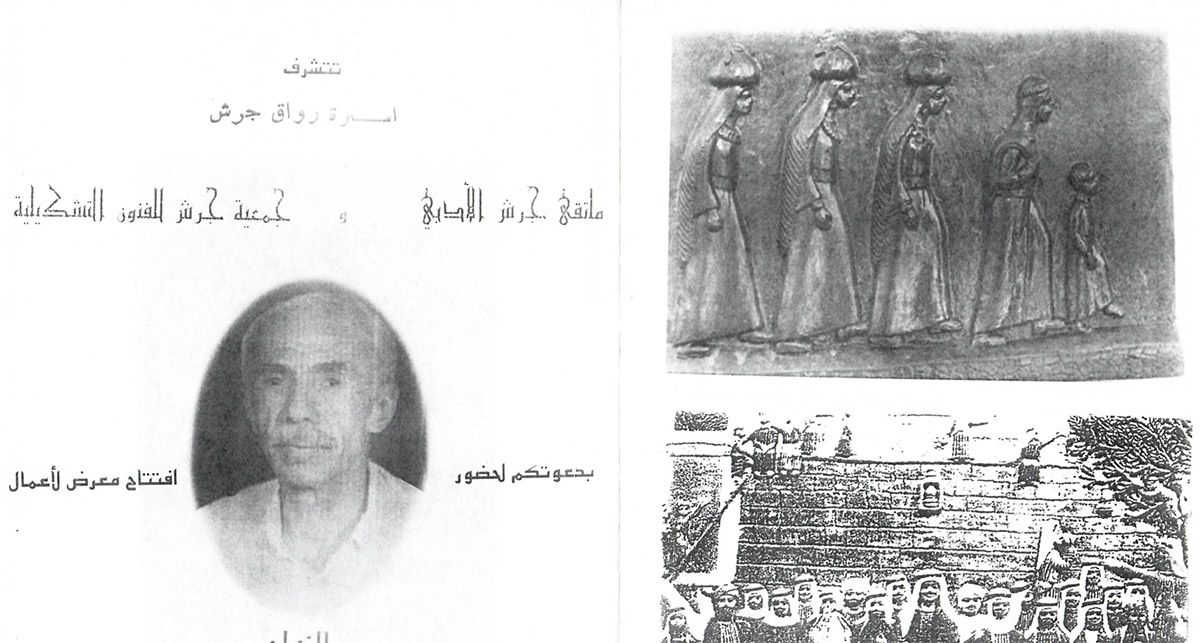 تتشرف
اسرة رواق جرش
ملتقى جرش الأدبي و جمعية جرش للفنون التشكيلية
بدعوتكم لحضور افتتاح معرض لأعمال